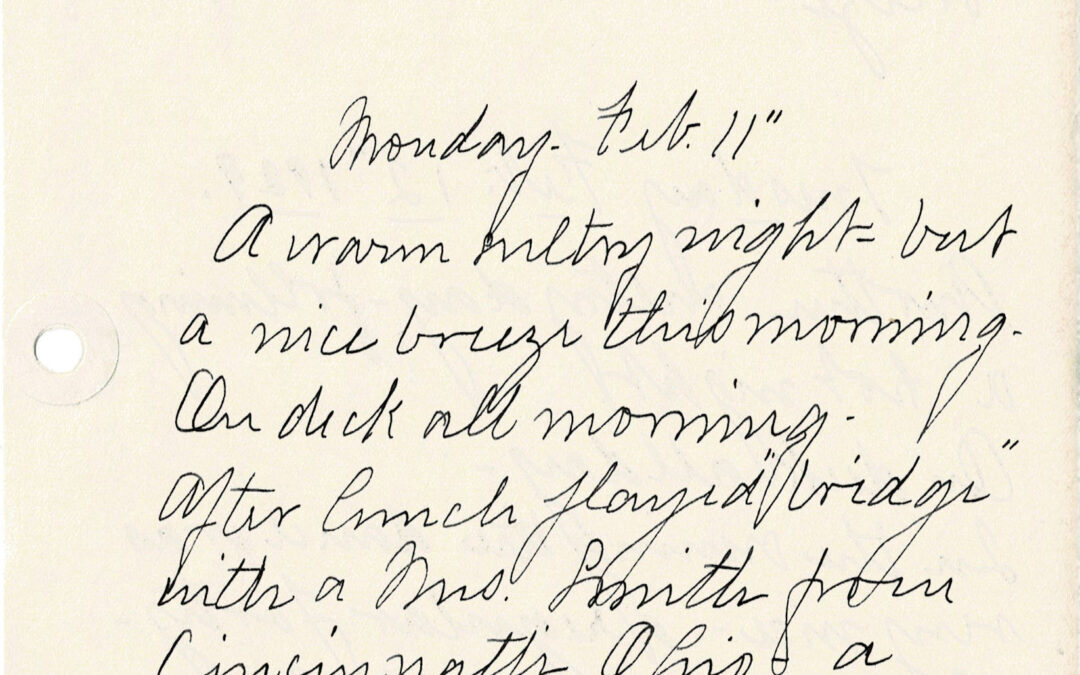 Monday. Feb. 11"
A warm sultry night = but
a nice breeze this morning.
On deck all morning.
After lunch played "bridge"
with a Mrs. Smith from
Cincinnatti Ohio - a